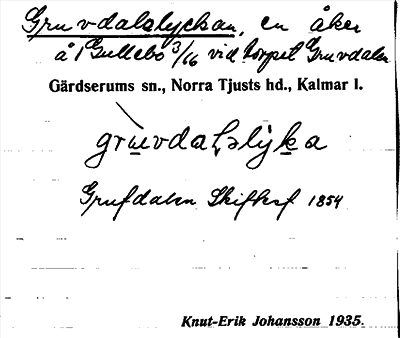 Gruvdalslyckan, en åker
å 1 Gullebo 3/16 vid torpet Gruvdalen
Gärdserums sn., Norra Tjusts hd., Kalmar l.
gru̲vdaḷslyk̲a
Grufdalen Skiftesf 1854
Knut-Erik Johansson 1935.